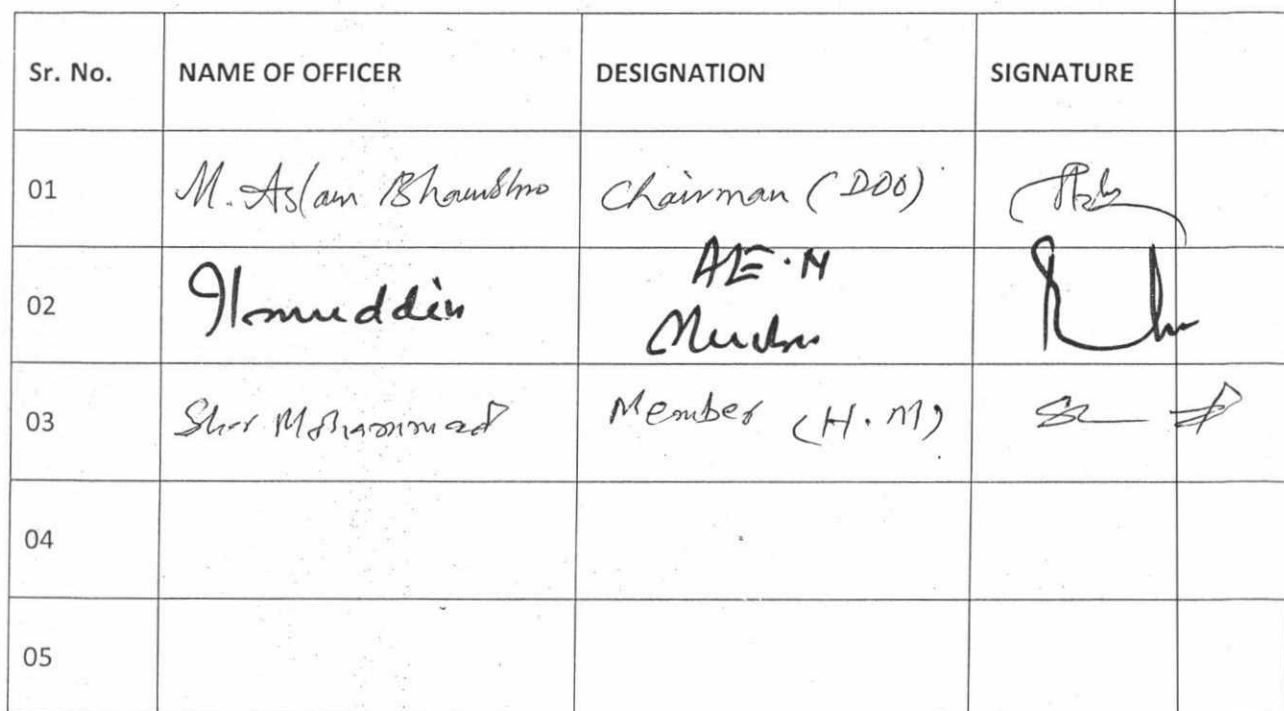 Sr. No. NAME OF OFFICER DESIGNATION SIGNATURE
01 M. Aslam Bhambhro Chairman (DOO)
02
03 Sher Mohammad Member (H.M)
04
05